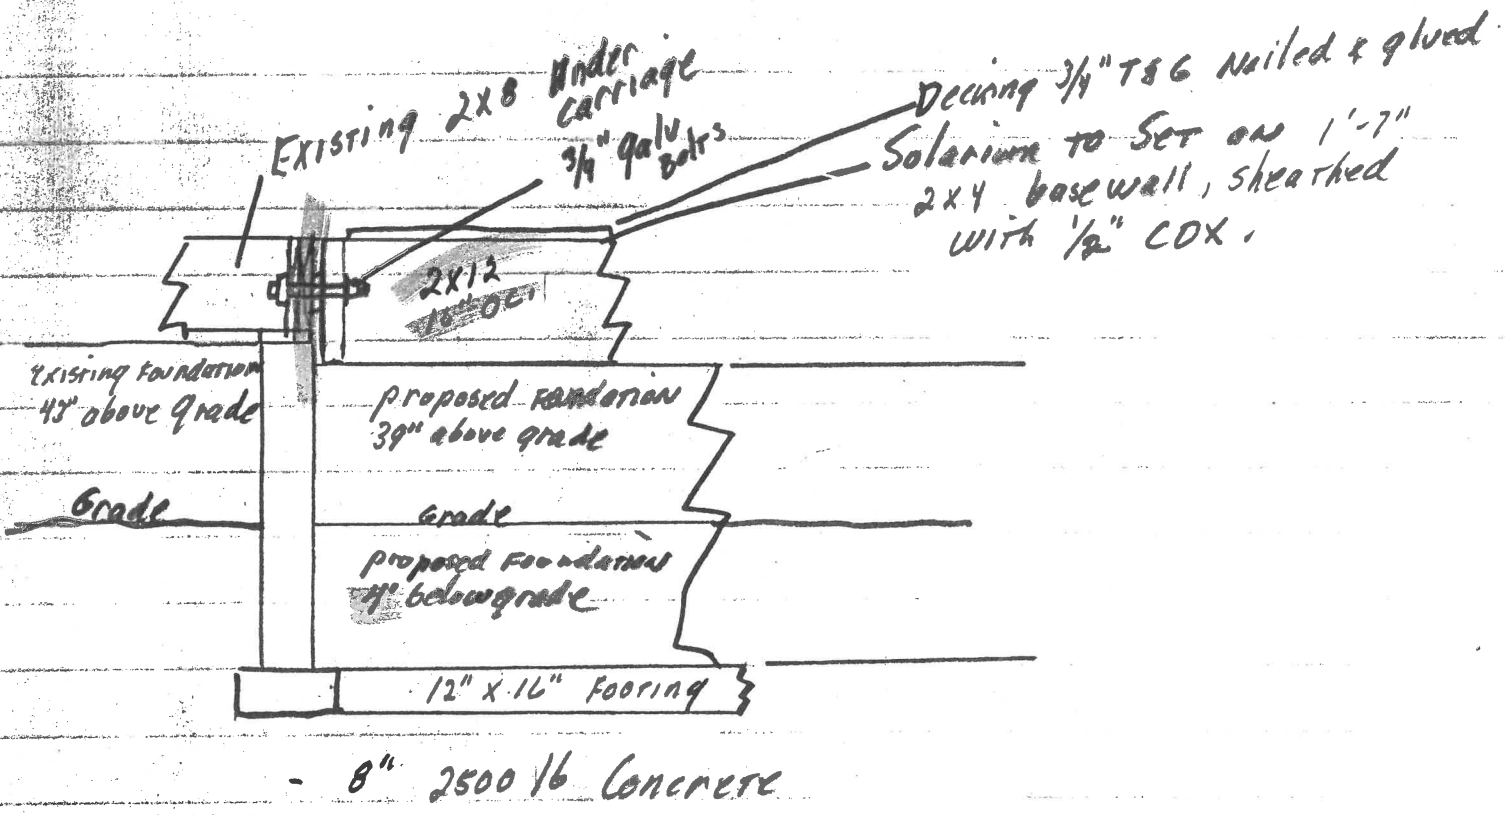 Existing 2X8 Under
carriage
3/4" galv
Bolts
Decking 3/4" T&G Nailed & glued
Solarium to Set on 1'-7"
2x4 basewall, sheathed
with 1/2" CDX.
2X12
16" OC.
existing Foundation
above grade
proposed Foundation
39" above grade
Grade
Grade
proposed Foundation
4" below grade
12" X 16" Footing
- 8" 2500 lb Concrete